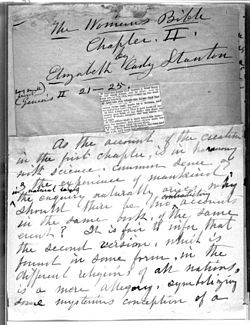 The Woman's Bible
Chapter II.
by
Elizabeth Cady Stanton
Genesis II 21–25.
As the account of the creation
in the first chapter, is in harmony
with science, common sense, &
the experience of mankind
in natural laws,
the enquiry naturally arises, why
should there be two contradictory accounts
in the same book, of the same
event? It is fair to infer that
the second version, which is
found in some form, in the
different religions of all nations,
is a mere allegory, symbolizing
some mysterious conception of a